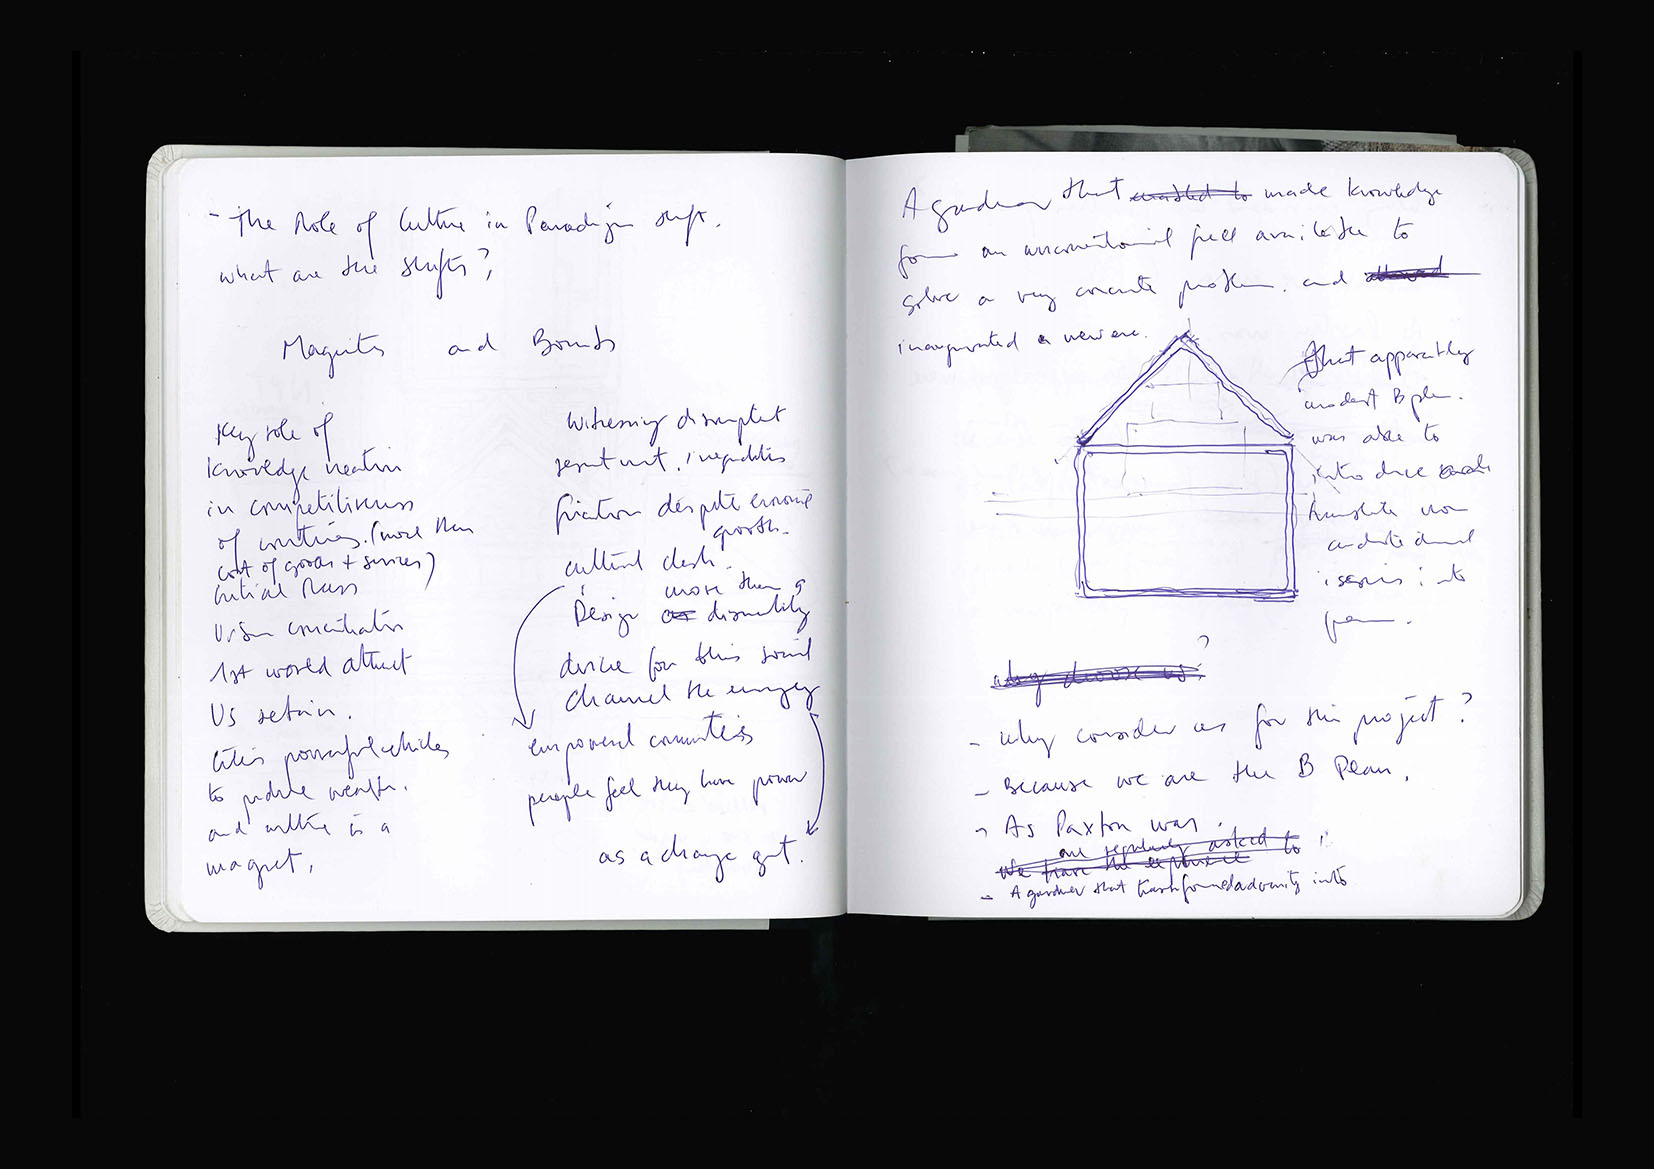 - The Role of Culture in Paradigm shift.
what are the shifts?
Magnets and Bombs
Key role of
knowledge creation
in competitiveness
of countries. (more than
cost of goods + services)
critical mass
Urban concentration
1st world attract
US retain.
Cities powerful vehicles
to produce wealth.
and culture is a
magnet.
Witnessing discomplet
resentment, inequalities
friction despite economic
growth.
cultural clash.
more than a
Design as dismantling
device for this social
channel the energy
empowered communities
people feel they have power
as a change agent.
A gardener that wanted to made knowledge
from an unconventional field available to
solve a very concrete problem. and allowed
inaugurated a new era.
that apparently
modest B plan.
was able to
introduce
translate non
architectural
issues into
form.
why choose us?
- Why consider us for this project?
- Because we are the B Plan.
- As Paxton was.
are regularly asked to
we have the experience
- A gardener that transformed adversity into